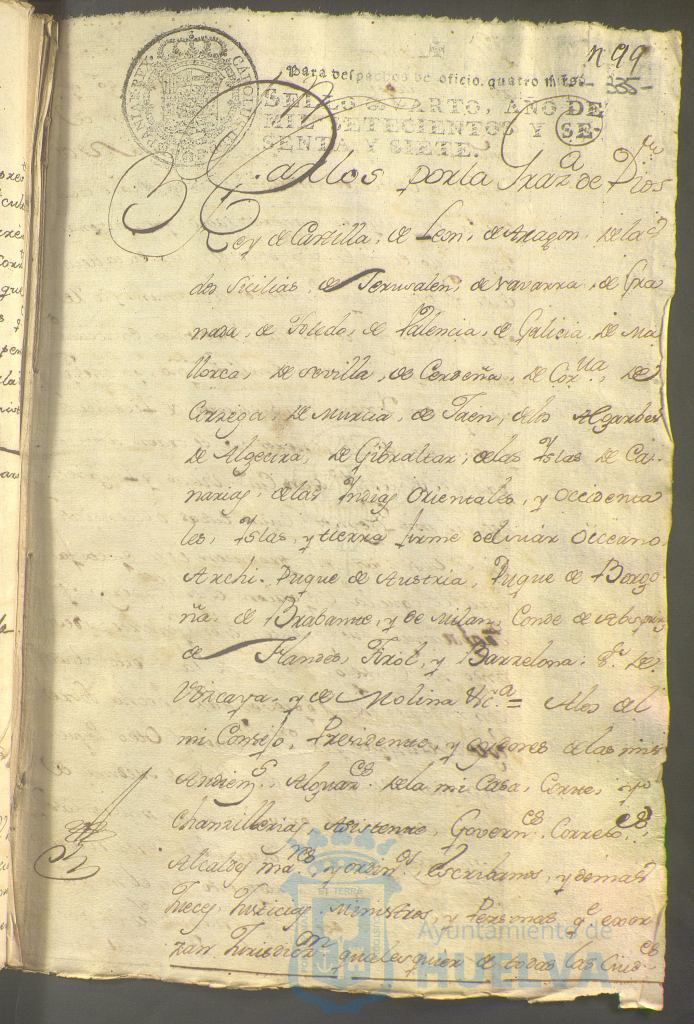 n 99
Para despachos de oficio, quatro mrs.
- 335 -
SELLO QVARTO, AÑO DE
MIL SETECIENTOS Y SE-
SENTA Y SIETE.
Carlos por la Graz.a de Dios
Rey de Castilla, de Leon, de Aragon, de las
dos Sicilias, de Jerusalen, de Navarra, de Gra
nada, de Toledo, de Valencia, de Galicia, de Ma
llorca, de Sevilla, de Cerdeña, de Cor.va, de
Corzega, de Murcia, de Jaen, de los Algarbes
de Algecira, de Gibraltar, de las Yslas de Ca-
narias, de las Yndias Orientales, y Occidenta
les, Yslas, y tierra firme del mar Occeano
Archi-Duque de Austria, Duque de Borgo-
ña, de Brabante, y de Milan, Conde de Abspurg
de Flandes, Tirol, y Barzelona: S.r de
Vizcaya, y de Molina &c.a = A los del
mi Consejo, Presidente, y oydores de las mis
Audien.s Alguaz.es de la mi Casa, Corte, y
Chanzillerias, Asistente, Govern.es Correx.es
Alcaldes ma.res y ordin.os, Escribanos, y demas
Juezes, Justicias, Ministros, y Personas q.e exer
zan Jurisdiz.on qualesquier de todas las Ciud.es
Ayuntamiento de
HUELVA